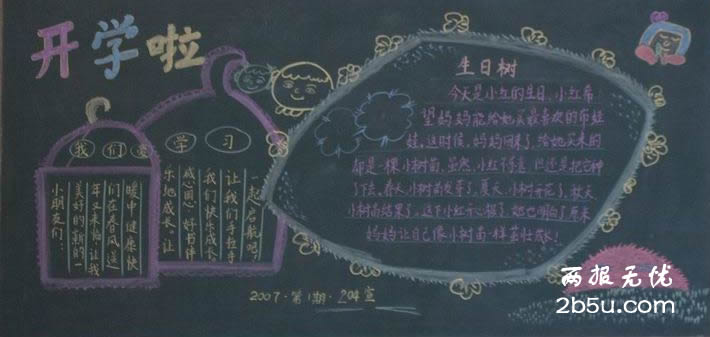 开学啦
我们爱学习
小朋友们:
美好的新的一
年又来临让我
们在春风送
暖中健康快
乐地成长。让
诚心园、好书伴
我们快乐成长
让我们手拉手
一起启航吧!
生日树
今天是小红的生日,小红希
望妈妈能给她买最喜欢的布娃
娃,这时候,妈妈回来了,给她买来的
却是一棵小树苗,虽然,小红不意,但还是把它种
了下去,春天小树苗发芽了,夏天,小树开花了,秋天
小树苗结果了,这下小红开心极了,她也明白了原来
妈妈让自己像小树苗一样茁壮成长!
2007·第1期·204宣
两报无忧
2b5u.com